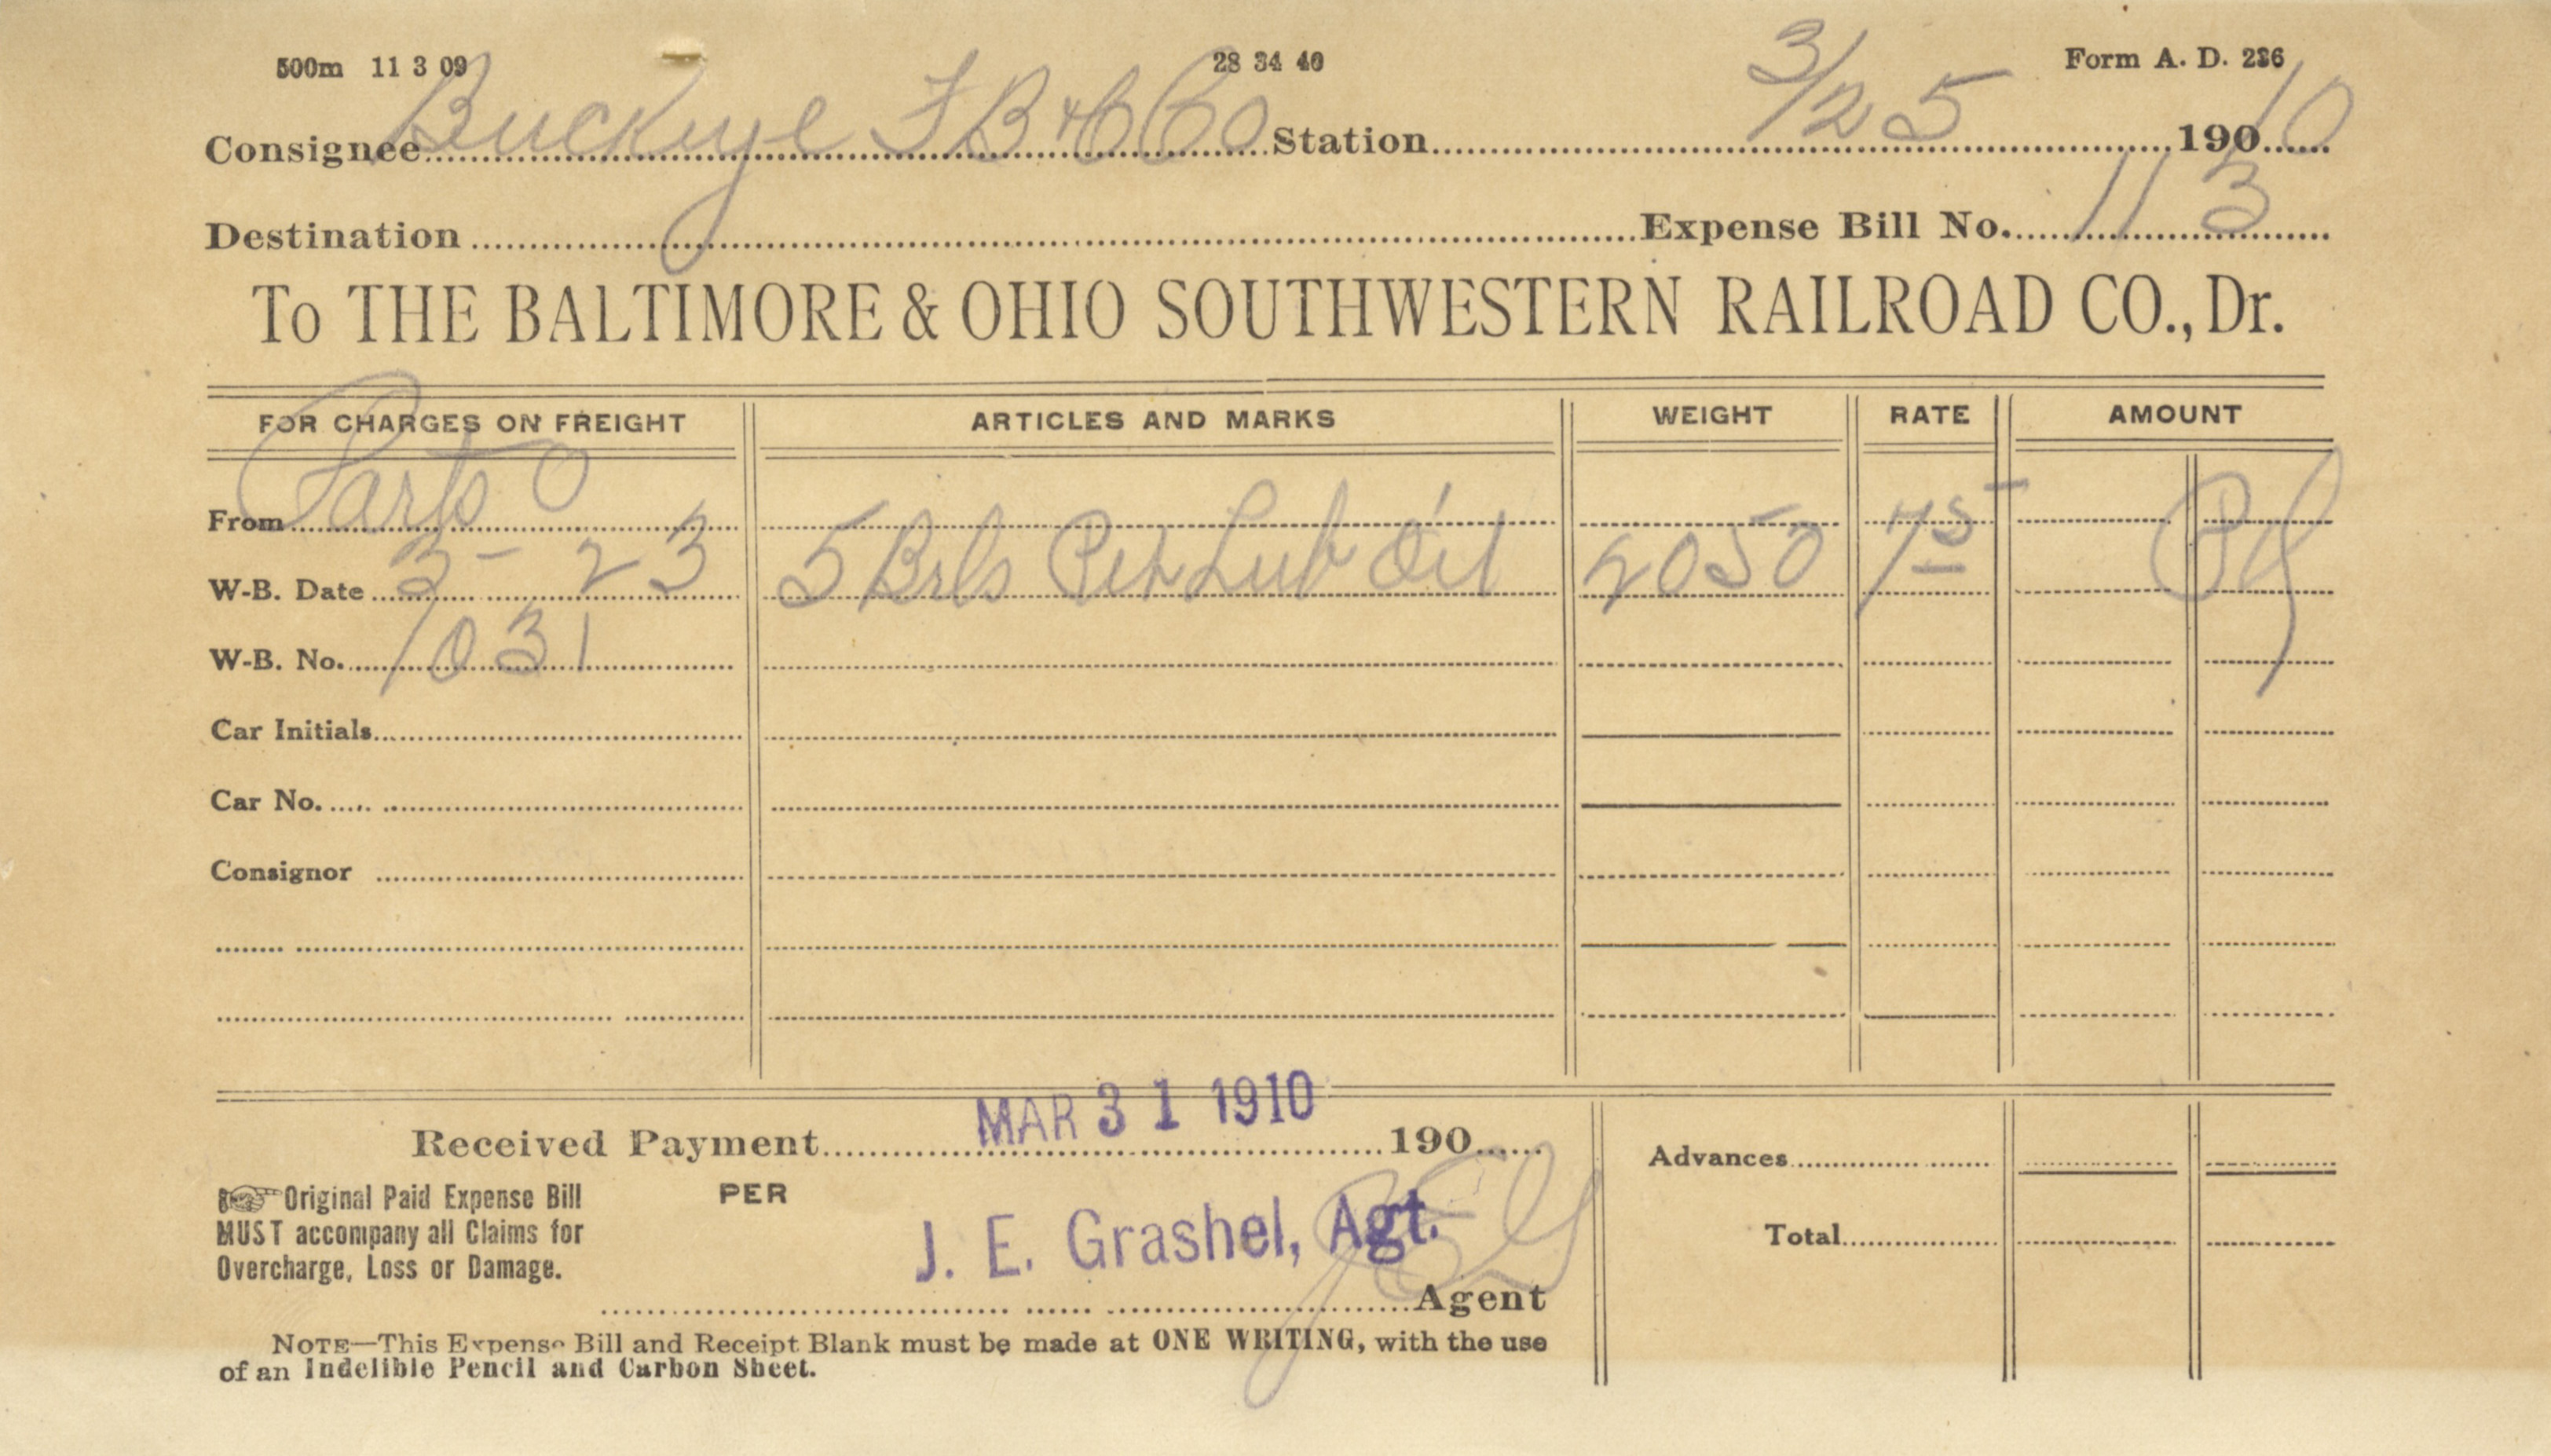 500m 11 3 09 28 34 40 Form A. D. 226
Consignee Buckeye F B & C Co Station 3/25 190 10
Destination Expense Bill No. 113
To THE BALTIMORE & OHIO SOUTHWESTERN RAILROAD CO., Dr.
FOR CHARGES ON FREIGHT ARTICLES AND MARKS WEIGHT RATE AMOUNT
From O
W-B. Date 3-23 5 Brls Pet Lub Oil 2050 75
W-B. No. 1031
Car Initials
Car No.
Consignor
MAR 31 1910
Received Payment 190 Advances
Original Paid Expense Bill PER
MUST accompany all Claims for J. E. Grashel, Agt. Total
Overcharge, Loss or Damage.
Agent
NOTE—This Expense Bill and Receipt Blank must be made at ONE WRITING, with the use
of an Indelible Pencil and Carbon Sheet.